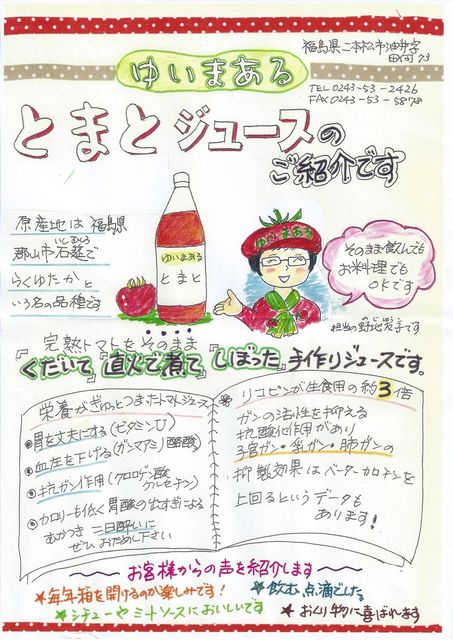 福島県二本松市油井字
田向73
TEL 0243-53-2426
FAX 0243-53-5878
ゆいまある
とまとジュースの
ご紹介です
原産地は福島県
郡山市石筵で
いしむしろ
らくゆたかと
いう名の品種です
ゆいまある
とまと
ゆいまある
そのまま飲んでも
お料理でも
OKです
担当の野地友子です
完熟トマトをそのまま
『くだいて』『直火で煮て』『しぼった』手作りジュースです。
栄養がぎゅっとつまったトマトジュース
●胃を丈夫にする(ビタミンU)
●血圧を下げる(ガンマアミノ酪酸)
●抗ガン作用(クロロゲン酸
ケルセチン)
●カロリーも低く胃酸の出すぎによる
むかつき 二日酔いに
ぜひおためし下さい
リコピンが生食用の約3倍
ガンの活性を抑える
抗酸化作用があり
子宮ガン・乳ガン・肺ガンの
抑製効果はベーターカロチンを
上回るというデータも
あります!
お客様からの声を紹介します
★毎年箱を開けるのが楽しみです!
★飲む、点滴でした。
★シチューやミートソースにおいしいです
★おくり物に喜ばれます